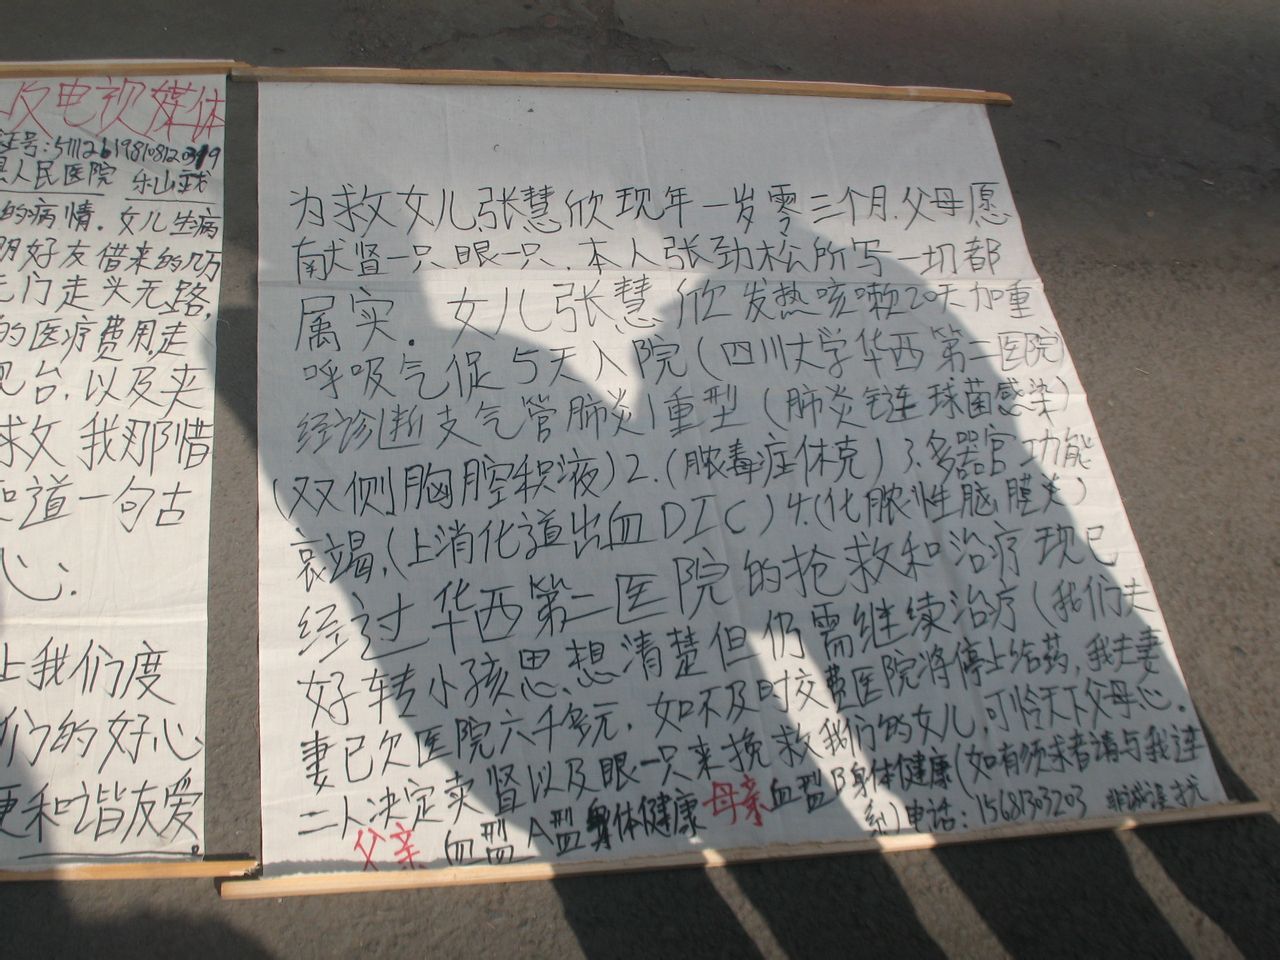 及电视媒体
证号:511126198108120319
县人民医院 乐山我
的病情.女儿生病
朋好友借来的几万
无门走头无路,
的医疗费用,走
视台,以及夹
求救 我那惜
知道一句古
心.
上我们度
们的好心、
更和谐友爱。
为救女儿,张慧欣现年一岁零三个月.父母愿
献肾一只.眼一只.本人张劲松所写一切都
属实.女儿张慧欣发热咳嗽20天加重
呼吸气促5天入院(四川大学华西第二医院)
经诊断支气管肺炎1重型(肺炎链球菌感染)
(双侧胸腔积液)2.(脓毒症休克)3.多器官功能
衰竭,(上消化道出血DIC)4.(化脓性脑膜炎)
经过华西第二医院的抢救和治疗现已
好转小孩思想清楚但仍需继续治疗(我们夫
妻已欠医院六千多元.如不及时交费医院将停止给药,我夫妻
二人决定卖肾以及眼一只来挽救我们的女儿,可怜天下父母心。
父亲(血型A型身体健康 母亲血型B身体健康(如有须求者请与我连
系)电话:15681303203 非诚误扰